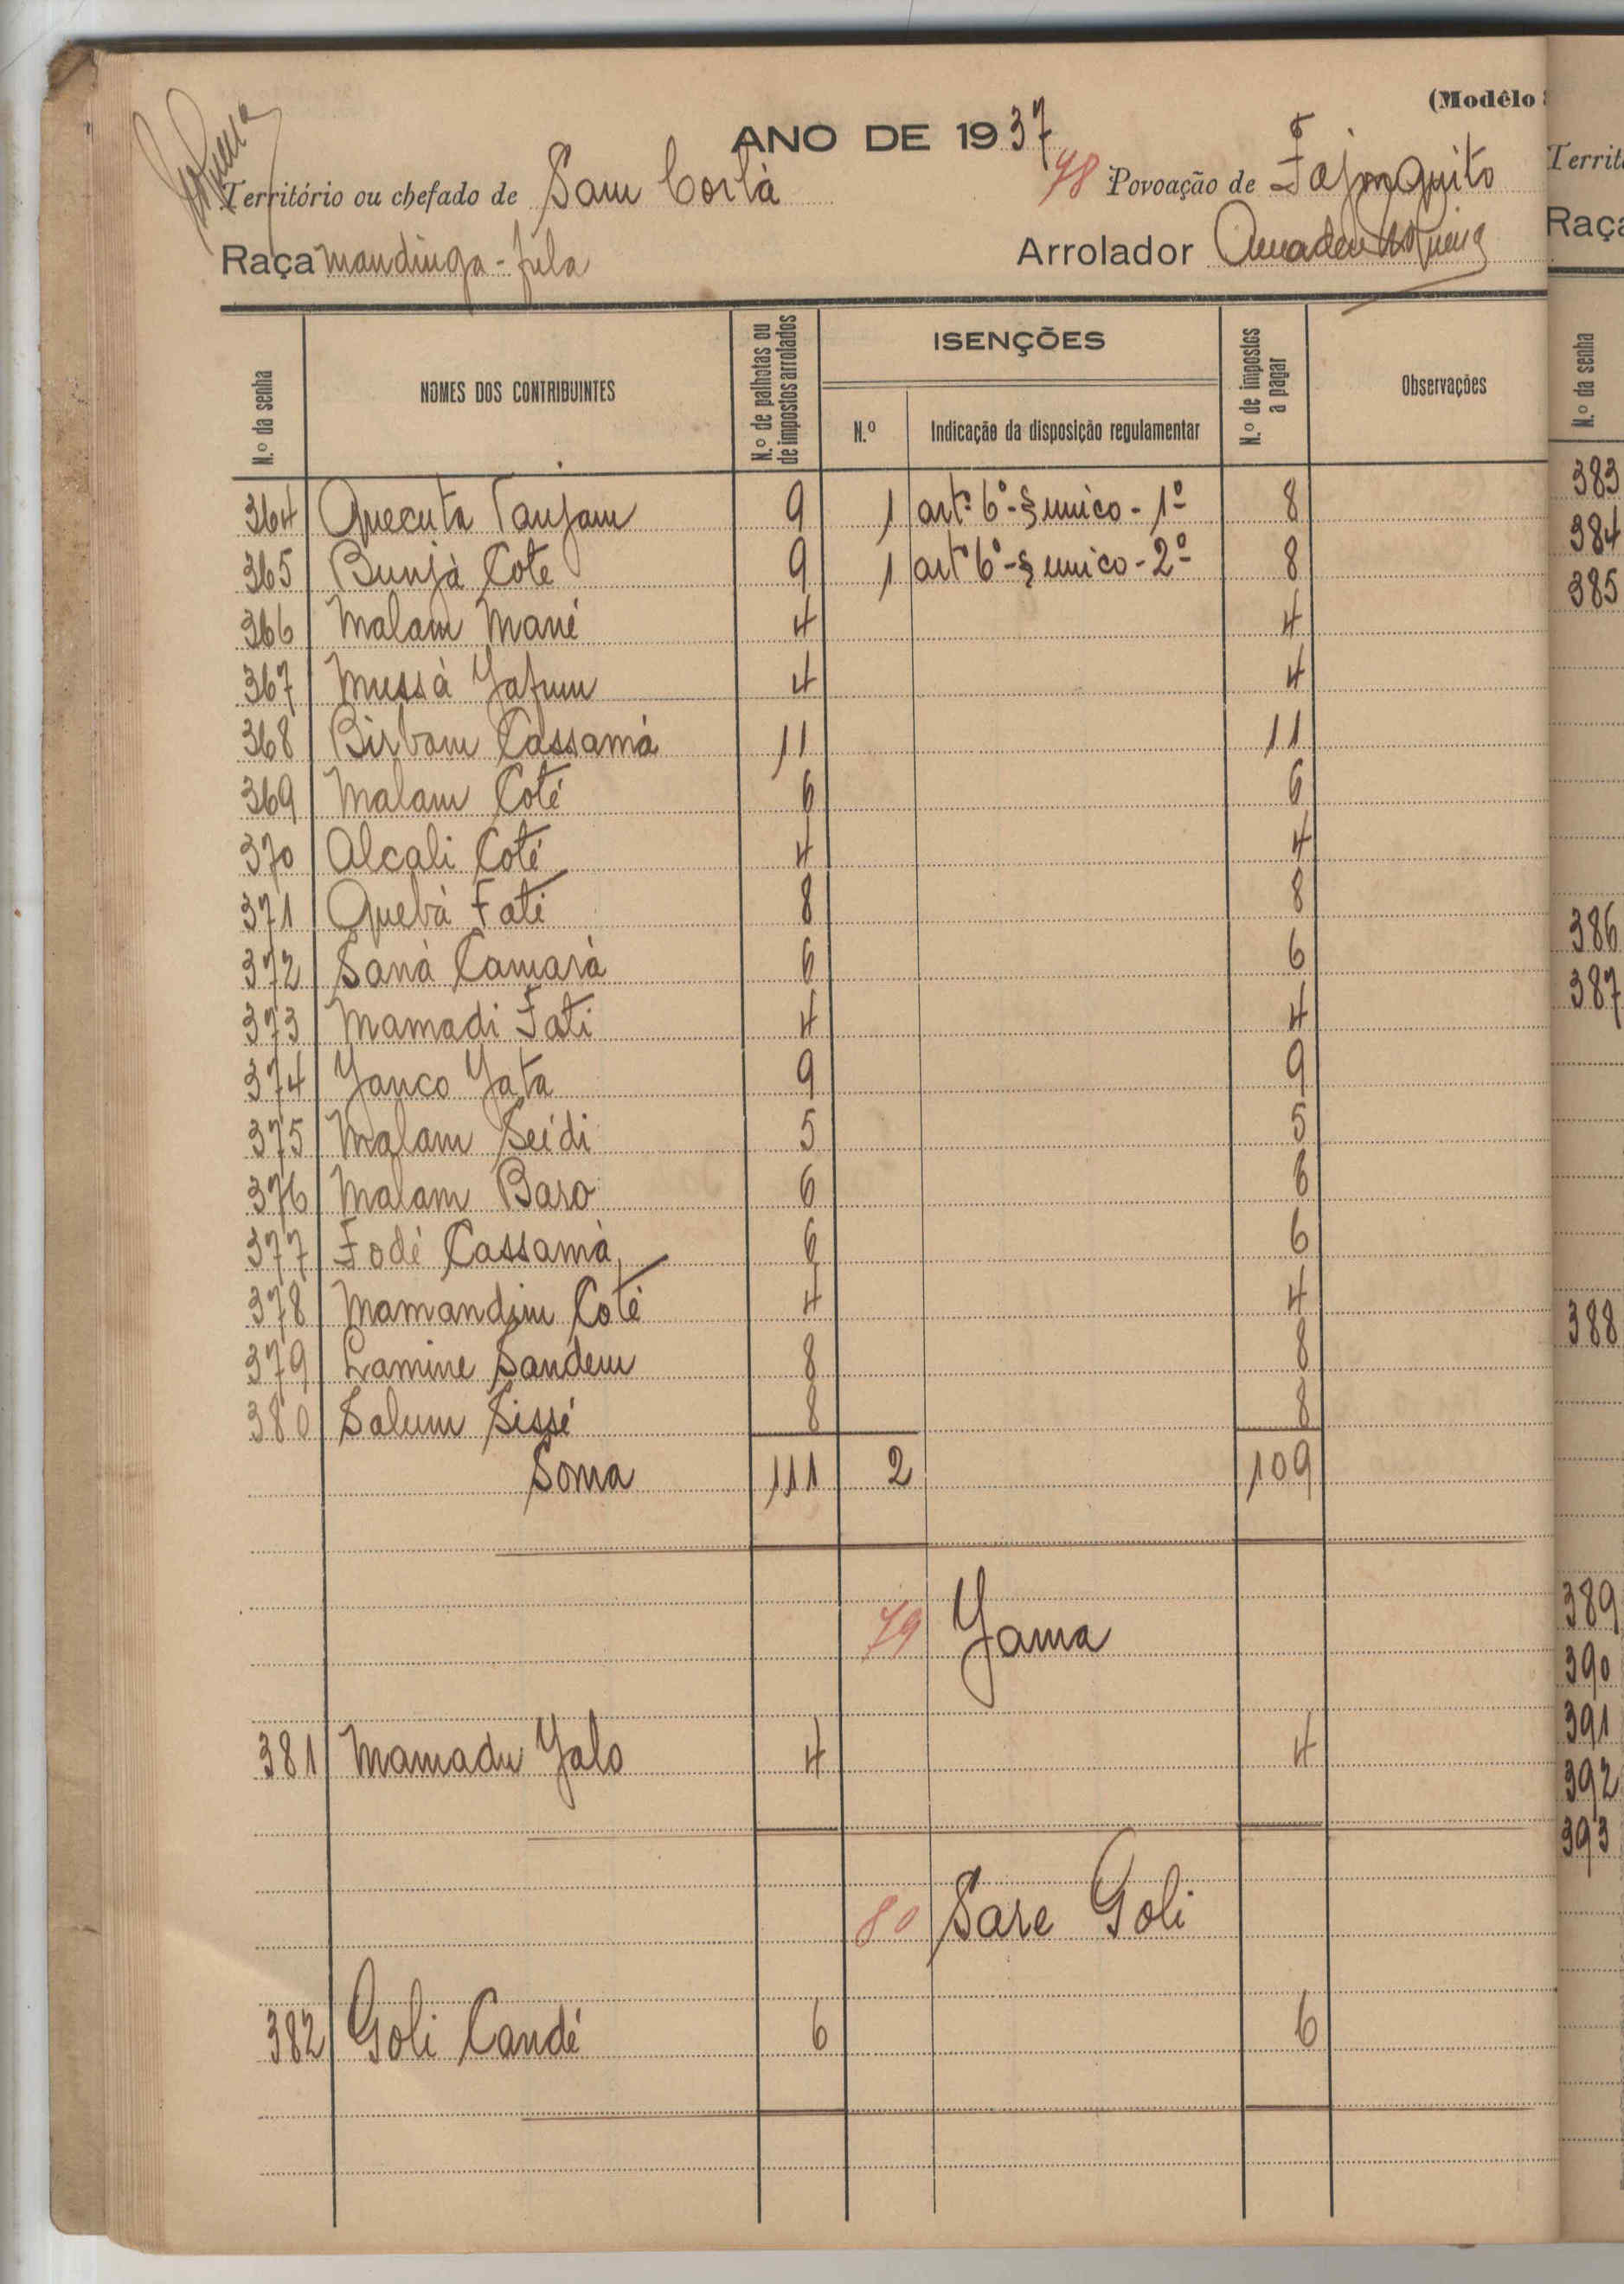 (Modêlo
ANO DE 1937
Território ou chefado de Sam Corlà
78 Povoação de Fajonquito
Raça mandinga - fula
Arrolador Amadeu
N.º da senha
NOMES DOS CONTRIBUINTES
N.º de palhotas ou de impostos arrolados
ISENÇÕES
N.º
Indicação da disposição regulamentar
N.º de impostos a pagar
Observações
364 Quecuta Tanjam 9 1 artº 6º - § unico - 1º 8
365 Bunjà Coté 9 1 artº 6º - § unico - 2º 8
366 Malam Mané 4 4
367 Mussà Jafum 4 4
368 Birbam Cassamà 11 11
369 Malam Coté 6 6
370 Alcali Coté 4 4
371 Quebà Fati 8 8
372 Sanà Camarà 6 6
373 Mamadi Fati 4 4
374 Yanco Yata 9 9
375 Malam Seidi 5 5
376 Malam Baro 6 6
377 Fodé Cassamà 6 6
378 Mamandim Coté 4 4
379 Lamine Sandem 8 8
380 Salum Sissé 8 8
Soma 111 2 109
79 Yama
381 Mamadu Yalo 4 4
80 Sare Goli
382 Goli Candé 6 6
Territ
Raça
N.º da senha
383
384
385
386
387
388
389
390
391
392
393